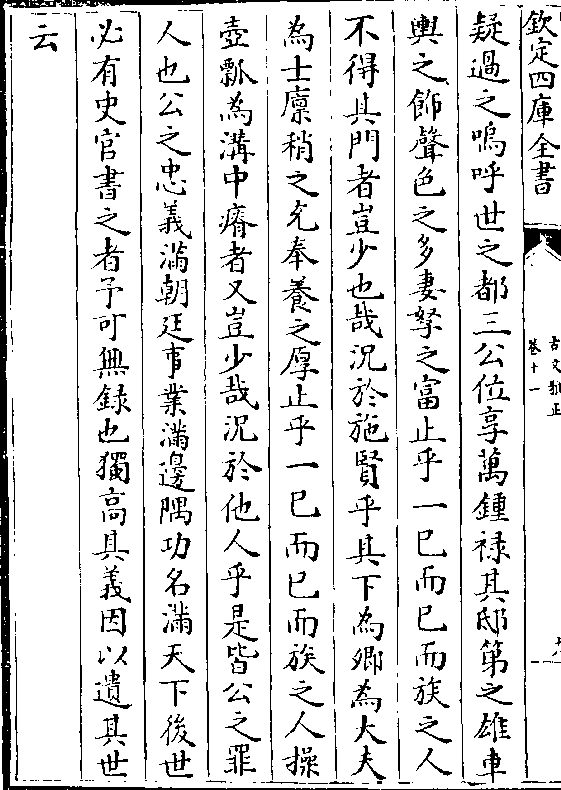 欽定四庫全書
古文雅正
卷十一
疑過之嗚呼世之都三公位享萬鍾禄其邸第之雄車
輿之飾聲色之多妻孥之富止乎一已而已而族之人
不得其門者豈少也哉況於施賢乎其下為卿為大夫
為士廪稍之充奉養之厚止乎一已而已而族之人操
壺瓢為溝中瘠者又豈少哉況於他人乎是皆公之罪
人也公之忠義滿朝廷事業滿邊隅功名滿天下後世
必有史官書之者予可無録也獨高其義因以遺其世
云